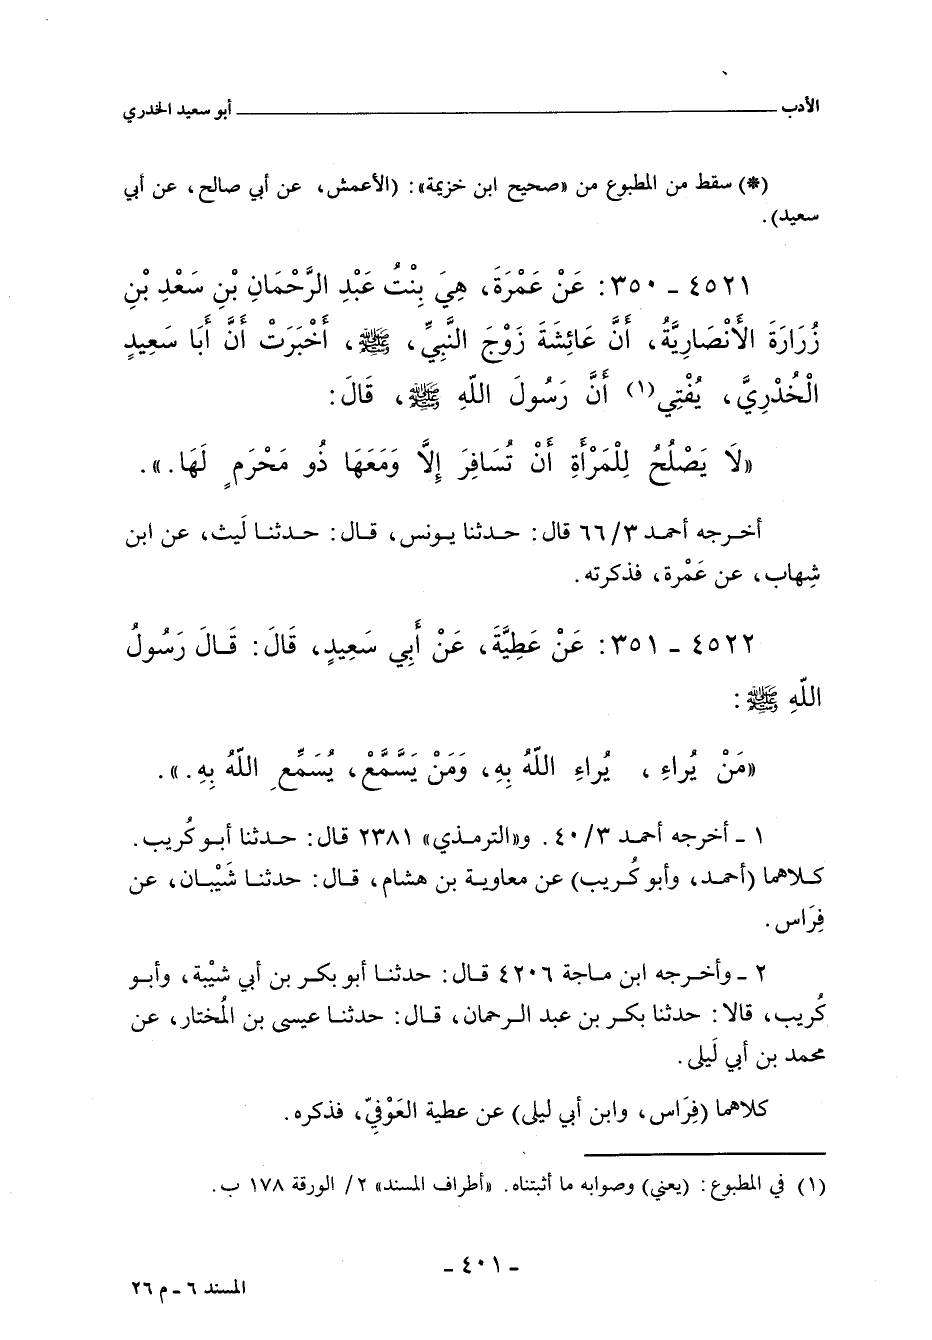 الأدب ــــــــــــــــــــ أبو سعيد الخدري
(*) سقط من المطبوع من «صحيح ابن خزيمة»: (الأعمش، عن أبي صالح، عن أبي
سعيد).
٤٥٢١ ـ ٣٥٠: عَنْ عَمْرَةَ، هِيَ بِنْتُ عَبْدِ الرَّحْمَانِ بْنِ سَعْدِ بْنِ
زُرَارَةَ الأَنْصَارِيَّةُ، أَنَّ عَائِشَةَ زَوْجَ النَّبِيِّ، ﷺ، أَخْبَرَتْ أَنَّ أَبَا سَعِيدٍ
الْخُدْرِيَّ، يُفْتِي(١) أَنَّ رَسُولَ اللّهِ ﷺ، قَالَ:
«لَا يَصْلُحُ لِلْمَرْأَةِ أَنْ تُسَافِرَ إِلَّا وَمَعَهَا ذُو مَحْرَمٍ لَهَا.».
أخرجه أحمد ٣/٦٦ قال: حدثنا يونس، قال: حدثنا ليث، عن ابن
شِهاب، عن عَمْرة، فذكرته.
٤٥٢٢ ـ ٣٥١: عَنْ عَطِيَّةَ، عَنْ أَبِي سَعِيدٍ، قَالَ: قَالَ رَسُولُ
اللّهِ ﷺ:
«مَنْ يُراءِ، يُراءِ اللّهُ بِهِ، وَمَنْ يَسَّمَّعْ، يُسَمِّعِ اللّهُ بِهِ.».
١ ـ أخرجه أحمد ٣/٤٠. و«الترمذي» ٢٣٨١ قال: حدثنا أبو كُريب.
كلاهما (أحمد، وأبو كُريب) عن معاوية بن هشام، قال: حدثنا شَيْبان، عن
فِرَاس.
٢ ـ وأخرجه ابن ماجة ٤٢٠٦ قال: حدثنا أبو بكر بن أبي شيْبة، وأبو
كُريب، قالا: حدثنا بكر بن عبد الرحمان، قال: حدثنا عيسى بن المُختار، عن
محمد بن أبي لَيلى.
كلاهما (فِرَاس، وابن أبي ليلى) عن عطية العَوْفِيّ، فذكره.
(١) في المطبوع: (يعني) وصوابه ما أثبتناه. «أطراف المسند» ٢/ الورقة ١٧٨ ب.
ـ ٤٠١ ـ
المسند ٦ ـ م ٢٦